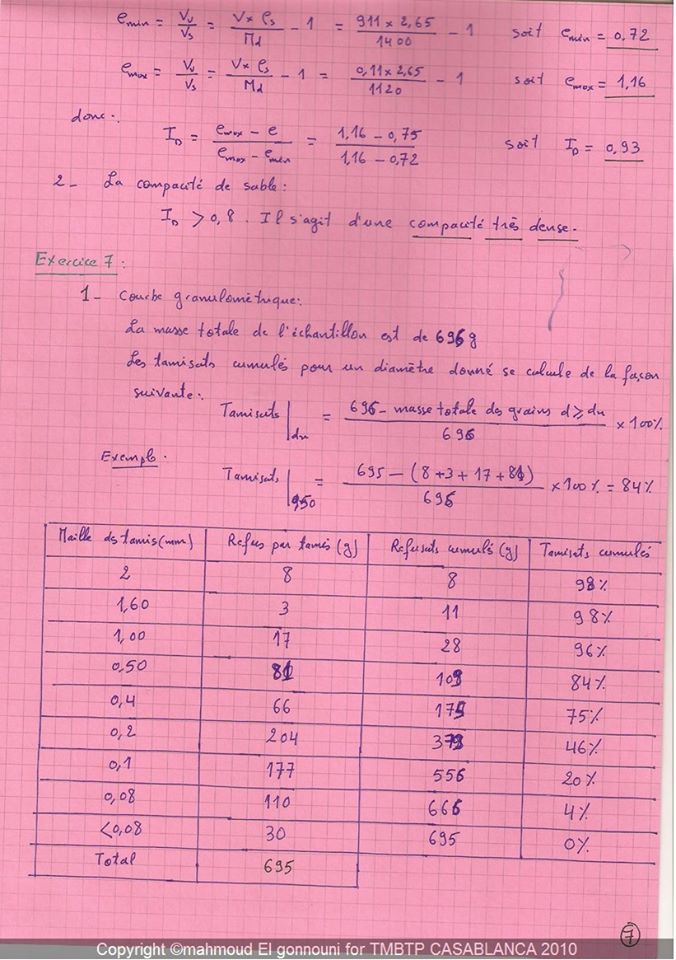 e_min = Vv/Vs = V × ρs / Md - 1 = 911 × 2,65 / 1400 - 1 soit e_min = 0,72
e_max = Vv/Vs = V × ρs / Md - 1 = 0,11 × 2,65 / 1120 - 1 soit e_max = 1,16
donc :
I_D = e_max - e / e_max - e_min = 1,16 - 0,75 / 1,16 - 0,72 soit I_D = 0,93
2- La compacité de sable :
I_D > 0,8 . Il s'agit d'une compacité très dense.
Exercice 7 :
1- Courbe granulométrique :
La masse totale de l'échantillon est de 696 g
Les tamisats cumulés pour un diamètre donné se calcule de la façon
suivante :
Tamisats | dn = 696 - masse totale des grains d ≥ dn / 696 × 100%
Exemple .
Tamisats | 0,50 = 695 - (8+3+17+81) / 696 × 100% = 84%
Maille des tamis (mm) Refus par tamis (g) Refusats cumulé (g) Tamisats cumulés
2 8 8 98%
1,60 3 11 98%
1,00 17 28 96%
0,50 81 109 84%
0,4 66 175 75%
0,2 204 379 46%
0,1 177 556 20%
0,08 110 666 4%
<0,08 30 695 0%
Total 695
7
Copyright ©mahmoud El gonnouni for TMBTP CASABLANCA 2010